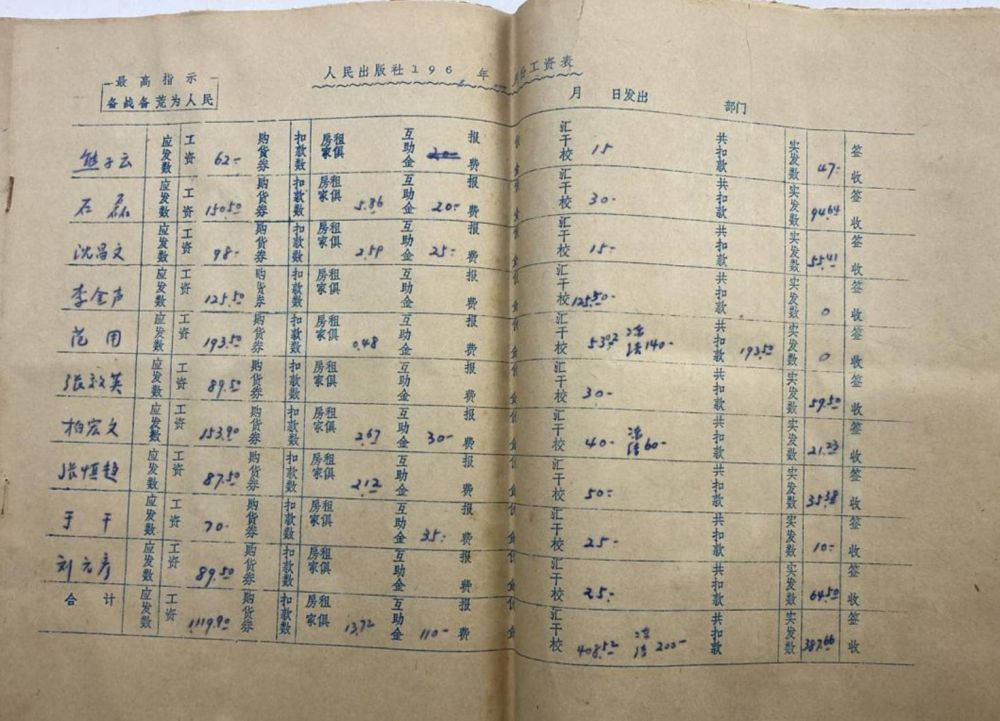 最高指示
备战备荒为人民
人民出版社196 年 月份工资表
月 日发出 部门
熊子云 应发数 工资 62- 购货券 扣款数 房租家俱 互助金 20- 报费 汇干校 15 共扣款 实发数 47- 签收
石磊 应发数 工资 150.50 购货券 扣款数 房租家俱 5.86 互助金 20- 报费 汇干校 30- 共扣款 实发数 94.64 签收
沈昌文 应发数 工资 98- 购货券 扣款数 房租家俱 2.59 互助金 25- 报费 汇干校 15- 共扣款 实发数 55.41 签收
李金声 应发数 工资 125.50 购货券 扣款数 房租家俱 互助金 报费 汇干校 125.50- 共扣款 实发数 0 签收
范用 应发数 工资 193.50 购货券 扣款数 房租家俱 0.48 互助金 报费 汇干校 53.02 冻结140- 共扣款 193.50 实发数 0 签收
张 英 应发数 工资 89.50 购货券 扣款数 房租家俱 互助金 报费 汇干校 30- 共扣款 实发数 59.50 签收
柏宏文 应发数 工资 153.90 购货券 扣款数 房租家俱 2.67 互助金 30- 报费 汇干校 40- 冻结60- 共扣款 实发数 21.23 签收
张恒 应发数 工资 87.50 购货券 扣款数 房租家俱 2.12 互助金 报费 汇干校 50- 共扣款 实发数 35.38 签收
于干 应发数 工资 70- 购货券 扣款数 房租家俱 互助金 35- 报费 汇干校 25- 共扣款 实发数 10- 签收
刘元彦 应发数 工资 89.50 购货券 扣款数 房租家俱 互助金 报费 汇干校 25- 共扣款 实发数 64.50 签收
合计 应发数 工资 1119.90 购货券 扣款数 房租家俱 13.72 互助金 110- 报费 汇干校 408.52 冻结200- 共扣款 实发数 387.66 签收